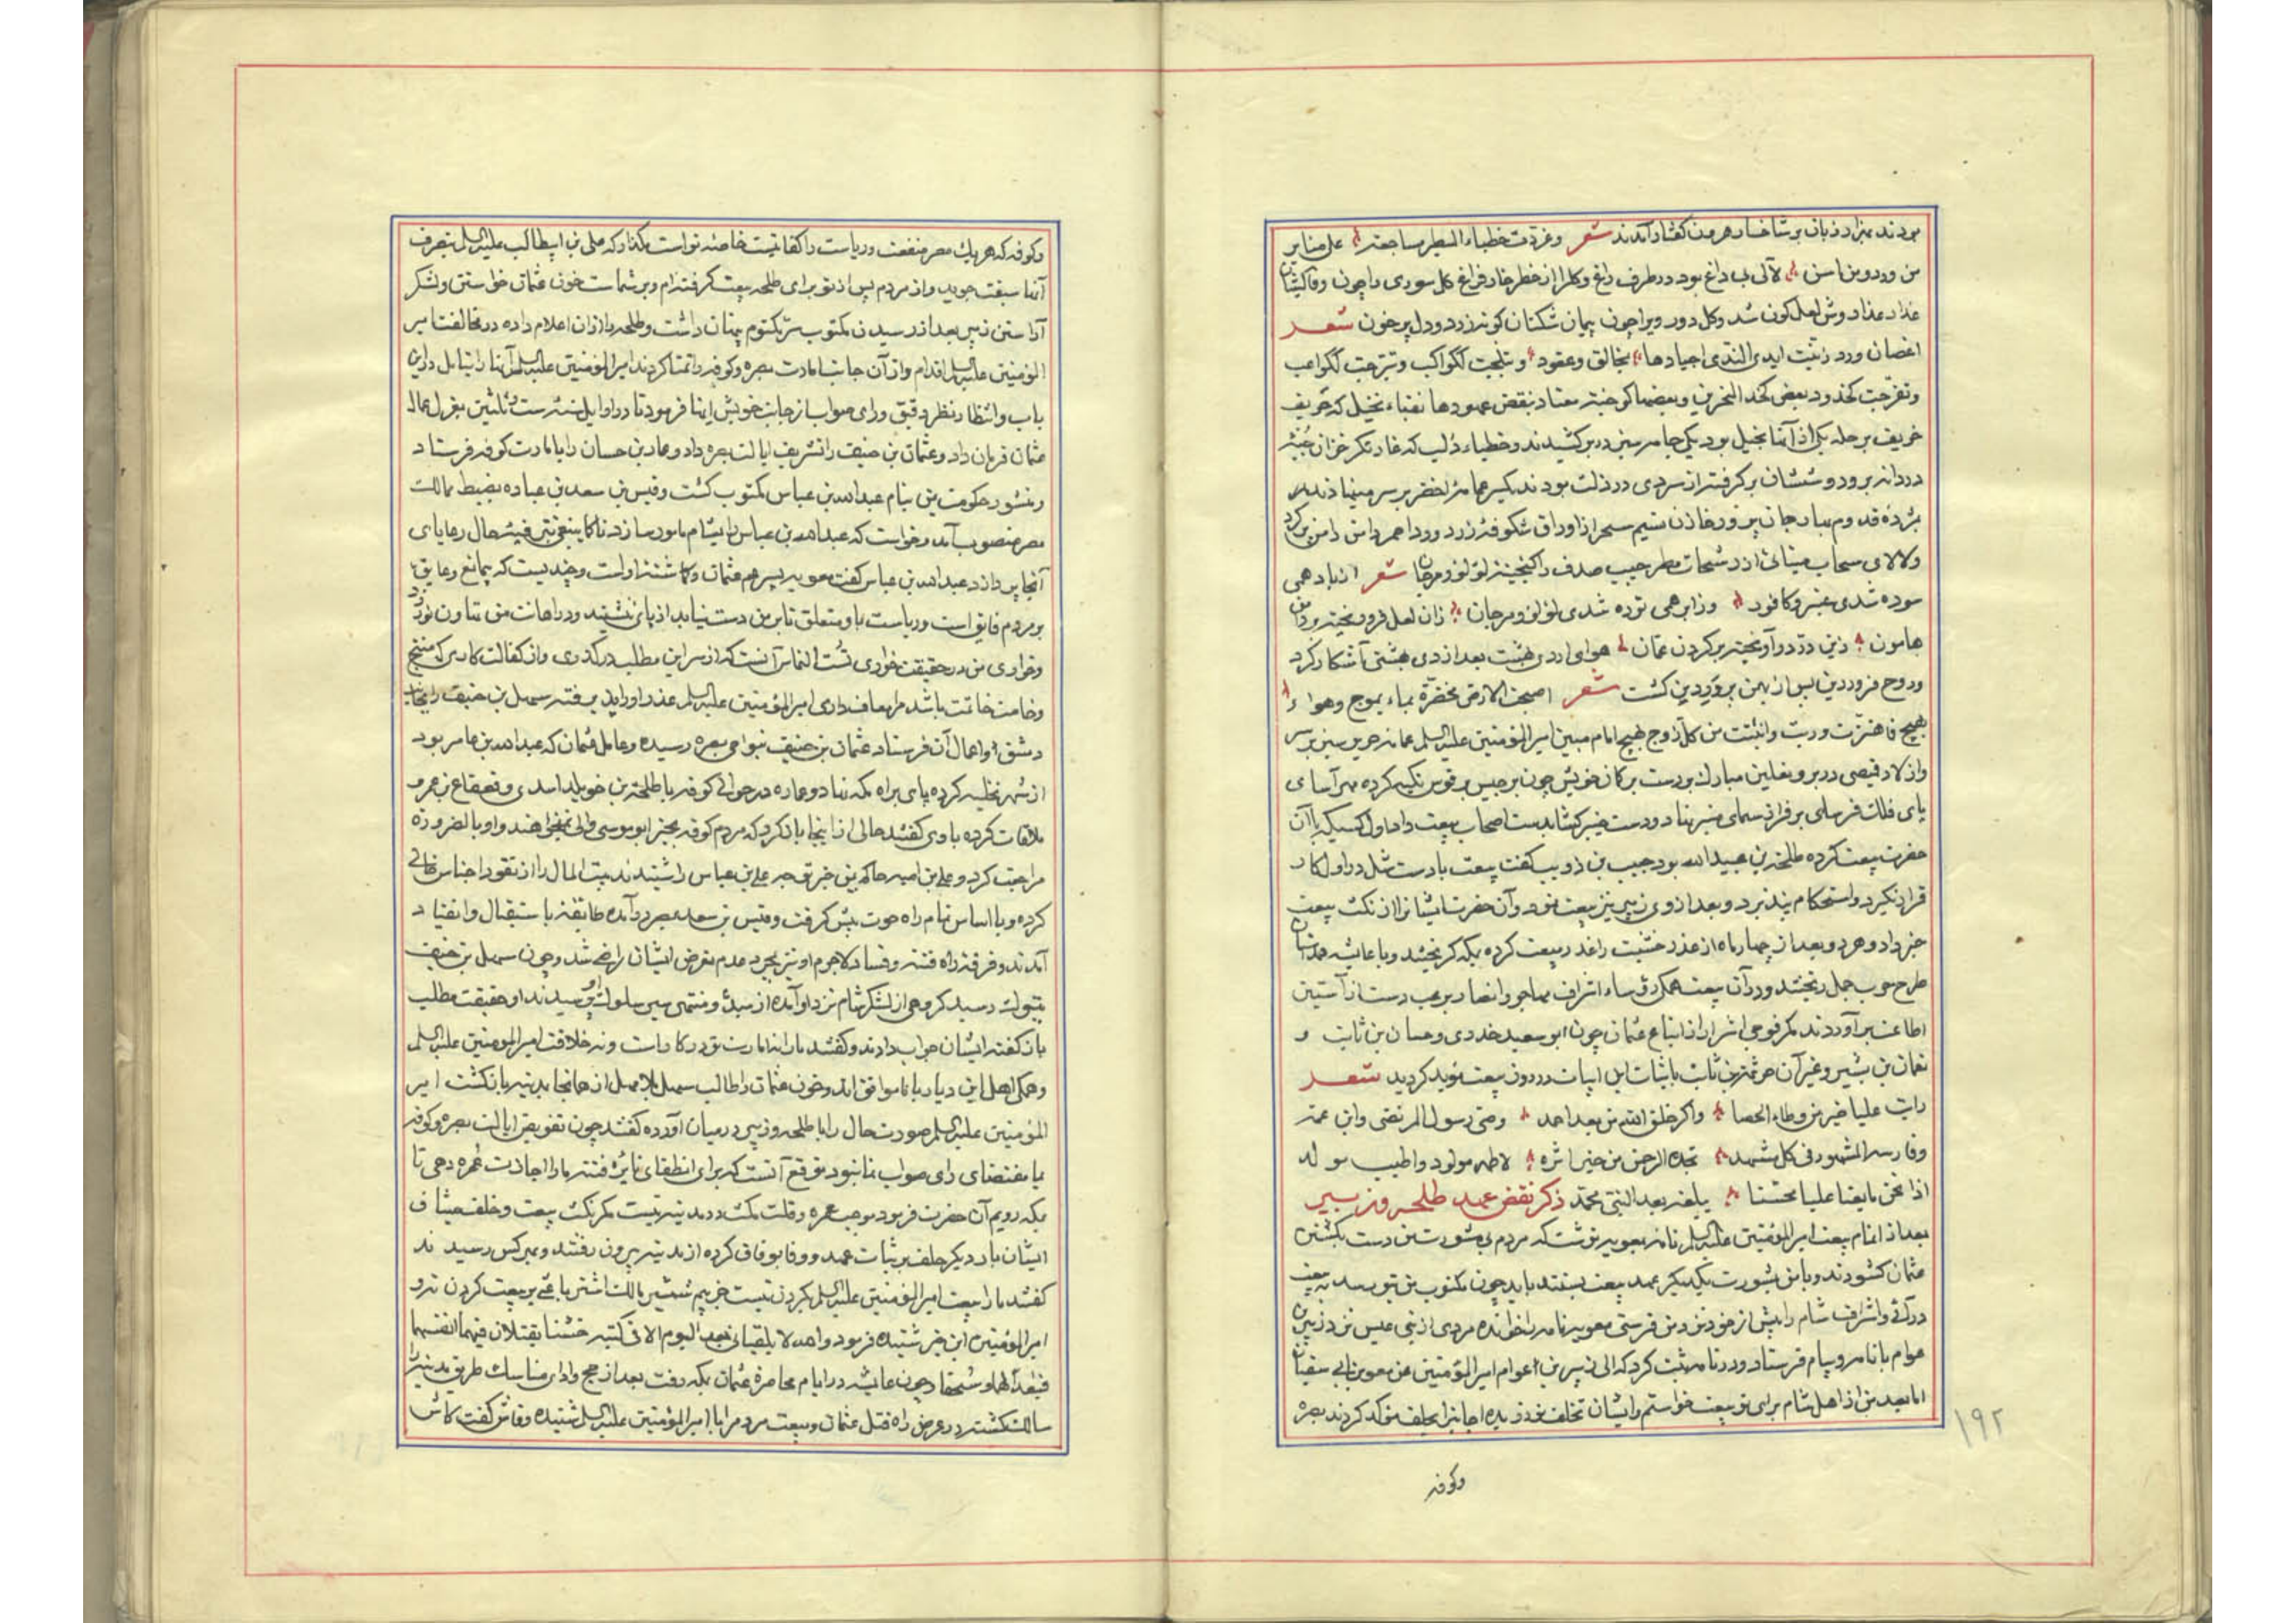 بودند بهزار زبان بر شاخسار هر من گفتار آمدند شعر وغردت خطباء الطیر ساجعة علی منابر
من ورد ومن اسن لآلی بی داغ بود در طرف راغ وکلرا از خطر خار فراغ کل سوری را چون
عذار عذار وش لعل کون شد وکل دور ویرا چون پیمان شکنان کونه زرد ودل پر خون شعر
اغصان ورد زینت ایدی الندی اجیادها بمخالق وعقود وتبلجت لکواکب وتبرجت لکواعب
وتفرجت کخدود بعض کخد
خریف بر حله یکی از آنها بخیل بود یکی جامه سبز در بر کشیدند وخطباء دلب که غارتکر خزان
دردانه برود وششان بر کرفته از سردی در ذلت بودند یکسر عمامه خضر بر سر
مژده قدوم بهار جان پرور خازن نسیم سحر از اوراق شکوفه زرد وورد احمر دامن دامن
ولالای سحاب مینائی از رشحات مطر جیب صدف را کنجینه لؤلؤ ومرجان شعر از باد همی
سوده شدی عنبر وکافور وز ابر همی توده شدی لؤلؤ ومرجان زان لعل فرو ریخته بر دامن
هامون زین در در آویخته بر کردن عمان هوای اردی بهشت بعد از دی بهشتی آشکار کرد
وروح فروردین پس از بهمن پرورین کشت شعر اصبحت الارض مخضرة بماء یموج وهواء
بهیج فاهتزت وربت وانبتت من کل زوج بهیج امام مبین امیر المؤمنین علیه السلم عمامه خز سبز بر سر
وازار وقمیصی در بر ونعلین مبارک بر دست بر کمان خویش چون برجیس بر قوس تکیه کرده مهر آسا
پای فلک فرسای بر فراز سمای منبر نهاد ودست خیر کشا بدست اصحاب بیعت داد اول کسیکه با آن
حضرت بیعت کرده طلحة بن عبیدالله بود حبیب بن ذویب کفت بیعت با دست شل در اول کار
قرار نکیرد واستحکام نپذیرد وبعد از وی زبیر نیز بیعت نمود وآن حضرت ایشانرا از نکث بیعت
خبر داد وهر دو بعد از چهار ماه از غدر
طرح حرب جمل ریختند ودر آن بیعت همکی رؤساء اشراف مهاجر وانصار بر عب دست از آستین
اطاعت بر آوردند مکر فوجی اشرار از اتباع عثمان چون ابو سعید خدری وحسان بن ثابت و
نعمان بن بشیر وغیر آن خزیمة بن ثابت با ثبات این ابیات در زود بیعت کردید شعر
رایت علیا خیر من وطاء الحصا واکرم خلق الله من بعد احمد وصی رسول المرتضی وابن عمه
وفارسه المشهور فی کل مشهد تخیره الرحمن من خیر اثره لاطهر مولود واطیب مولد
اذا نحن بایعنا علیا بحسبنا یلغه بعد النبی محمد ذکر نقض عهد طلحه وزبیر
بعد از اتمام بیعت امیر المؤمنین علیه السلم نامه بمعویه نوشت که مردم بی مشورت من دست بکشتن
عثمان کشودند وبا من بمشورت یکدیکر عهد بیعت بستند باید چون مکتوب من بتو رسد به بیعت
در آئی واشراف شام را پیش از خود نزد من فرستی معویه نامه را خوانده مردی از بنی عبس نزد زبیر بن
عوام با نامه وپیام فرستاد ودر نامه ثبت کرد که الی زبیر بن اعوام امیر المؤمنین عن معویة بن ابی سفیان
اما بعد من از اهل شام برای تو بیعت خواستم وایشان تخلف نورزیده اجابترا بحلف موکد کردند بصره
۱۹۲
وکوفه
وکوفه که هر یک مصر منفعت وریاست را کفایتست خاصه تو است مکذار که علی بن ابیطالب علیه السلم بتصرف
آنها سبقت جوید واز مردم پس از تو برای طلحه بیعت کرفته ام وبر شماست خون عثمان خواستن ولشکر
آراستن زبیر بعد از رسیدن مکتوب سر مکتوم پنهان داشت وطلحه را از ان اعلام داده در مخالفت امیر
المؤمنین علیه السلم اقدام واز آن جانب امارت بصره وکوفه را تمنا کردند امیر المؤمنین علیه السلم آنها را بتامل در این
باب وانتظار نظر دقیق ورای صواب از جانب خویش ایما فرمود تا در اوایل سنه ست وثلثین بعزل عمال
عثمان فرمان داد وعثمان بن حنیف را تشریف ایالت بصره داد وعمار بن حسان را بامارت کوفه فرستاد
ومنشور حکومت یمن بنام عبدالله بن عباس مکتوب کشت وقیس بن سعد بن عباده بضبط ممالک
مصر منصوب آمد وخواست که عبدالله بن عباس را بشام مامور سازد تا کما ینبغی بتفتیش حال رعایای
آنجا پردازد عبدالله بن عباس کفت معویه پسر عم عثمان وکماشته او است وچندیست که بیمانع وعایق
بر مردم فایق است وریاست باو متعلق تا بر من دست نیابد از پای ننشیند ودر اهانت من تهاون نورزد
وخواری من در حقیقت خواری تست التماس آنست که از سر این مطلب در کذری واز کفالت کاری که منتج
وخامت خاتمت باشد مرا معاف داری امیر المؤمنین علیه السلم عذر او را پذیرفته سهیل بن حنیف را بجانب
دمشق واعمال آن فرستاد عثمان بن حنیف بنواحی بصره رسیده وعامل عثمان که عبدالله بن عامر بود
از شهر تخلیه کرده پای براه مکه نهاد وعماره در حوالی کوفه با طلحة بن خویلد اسدی وقعقاع بن عمرو
ملاقات کرده با وی کفتند حالی از اینجا باز کرد که مردم کوفه بجز ابو موسی والی نمیخواهند واو بالضروره
مراجعت کرد وعلی بن امیه حاکم یمن خبر توجه علی بن عباس را شنید بیت المال را از نقود واجناس خالی
کرده وبا اساس تمام راه حوت پیش کرفت وقیس بن سعد بمصر در آمده طایفه باستقبال وانقیاد
آمدند وفرقه راه فتنه وفساد لاجرم او نیز بمجرد عدم تعرض ایشان راضی شد وچون سهیل بن حنیف
بتبوک رسید کروهی از لشکر شام نزد او آمده از مبدء ومنتهی سلوک او پرسیدند او حقیقت مطلب
باز کفته ایشان جواب دادند وکفتند ما را نه امارت تو در کار است ونه خلافت امیر المؤمنین علیه السلم
وهمکی اهل این دیار با ما موافق اند وخون عثمان را طالب سهیل بلا مهل از همانجا بمدینه باز کشت امیر
المؤمنین علیه السلم صورت حال را با طلحه وزبیر در میان آورده کفتند چون تفویض ایالت بصره وکوفه
بما بمقتضای رای صواب نما نبود توقع آنست که برای انطفای نایره فتنه ما را اجازت عمره دهی تا
بمکه رویم آن حضرت فرمود موجب عمره وقلت مکث در مدینه نیست مکر نکث بیعت وخلف میثاق
ایشان بار دیکر حلف بر ثبات عهد ووفا بوفاق کرده از مدینه بیرون رفتند وبهر کس رسیدند
کفتند ما را بیعت امیر المؤمنین علیه السلم بکردن نیست جز بیم شمشیر مالک اشتر باعثی بر بیعت کردن نه و
امیر المؤمنین این خبر شنیده فرمود والله لا یلقیانی بعد الیوم الا فی کتیبة خشنا یقتلان فیها انفسهما
فبعدا لهما وسحقا وچون عایشه در ایام محاصره عثمان بمکه رفت بعد از حج وادای مناسک طریق مدینه را
سالک کشته در عرض راه قتل عثمان وبیعت مردم را با امیر المؤمنین علیه السلم شنیده وفاش کفت کاش